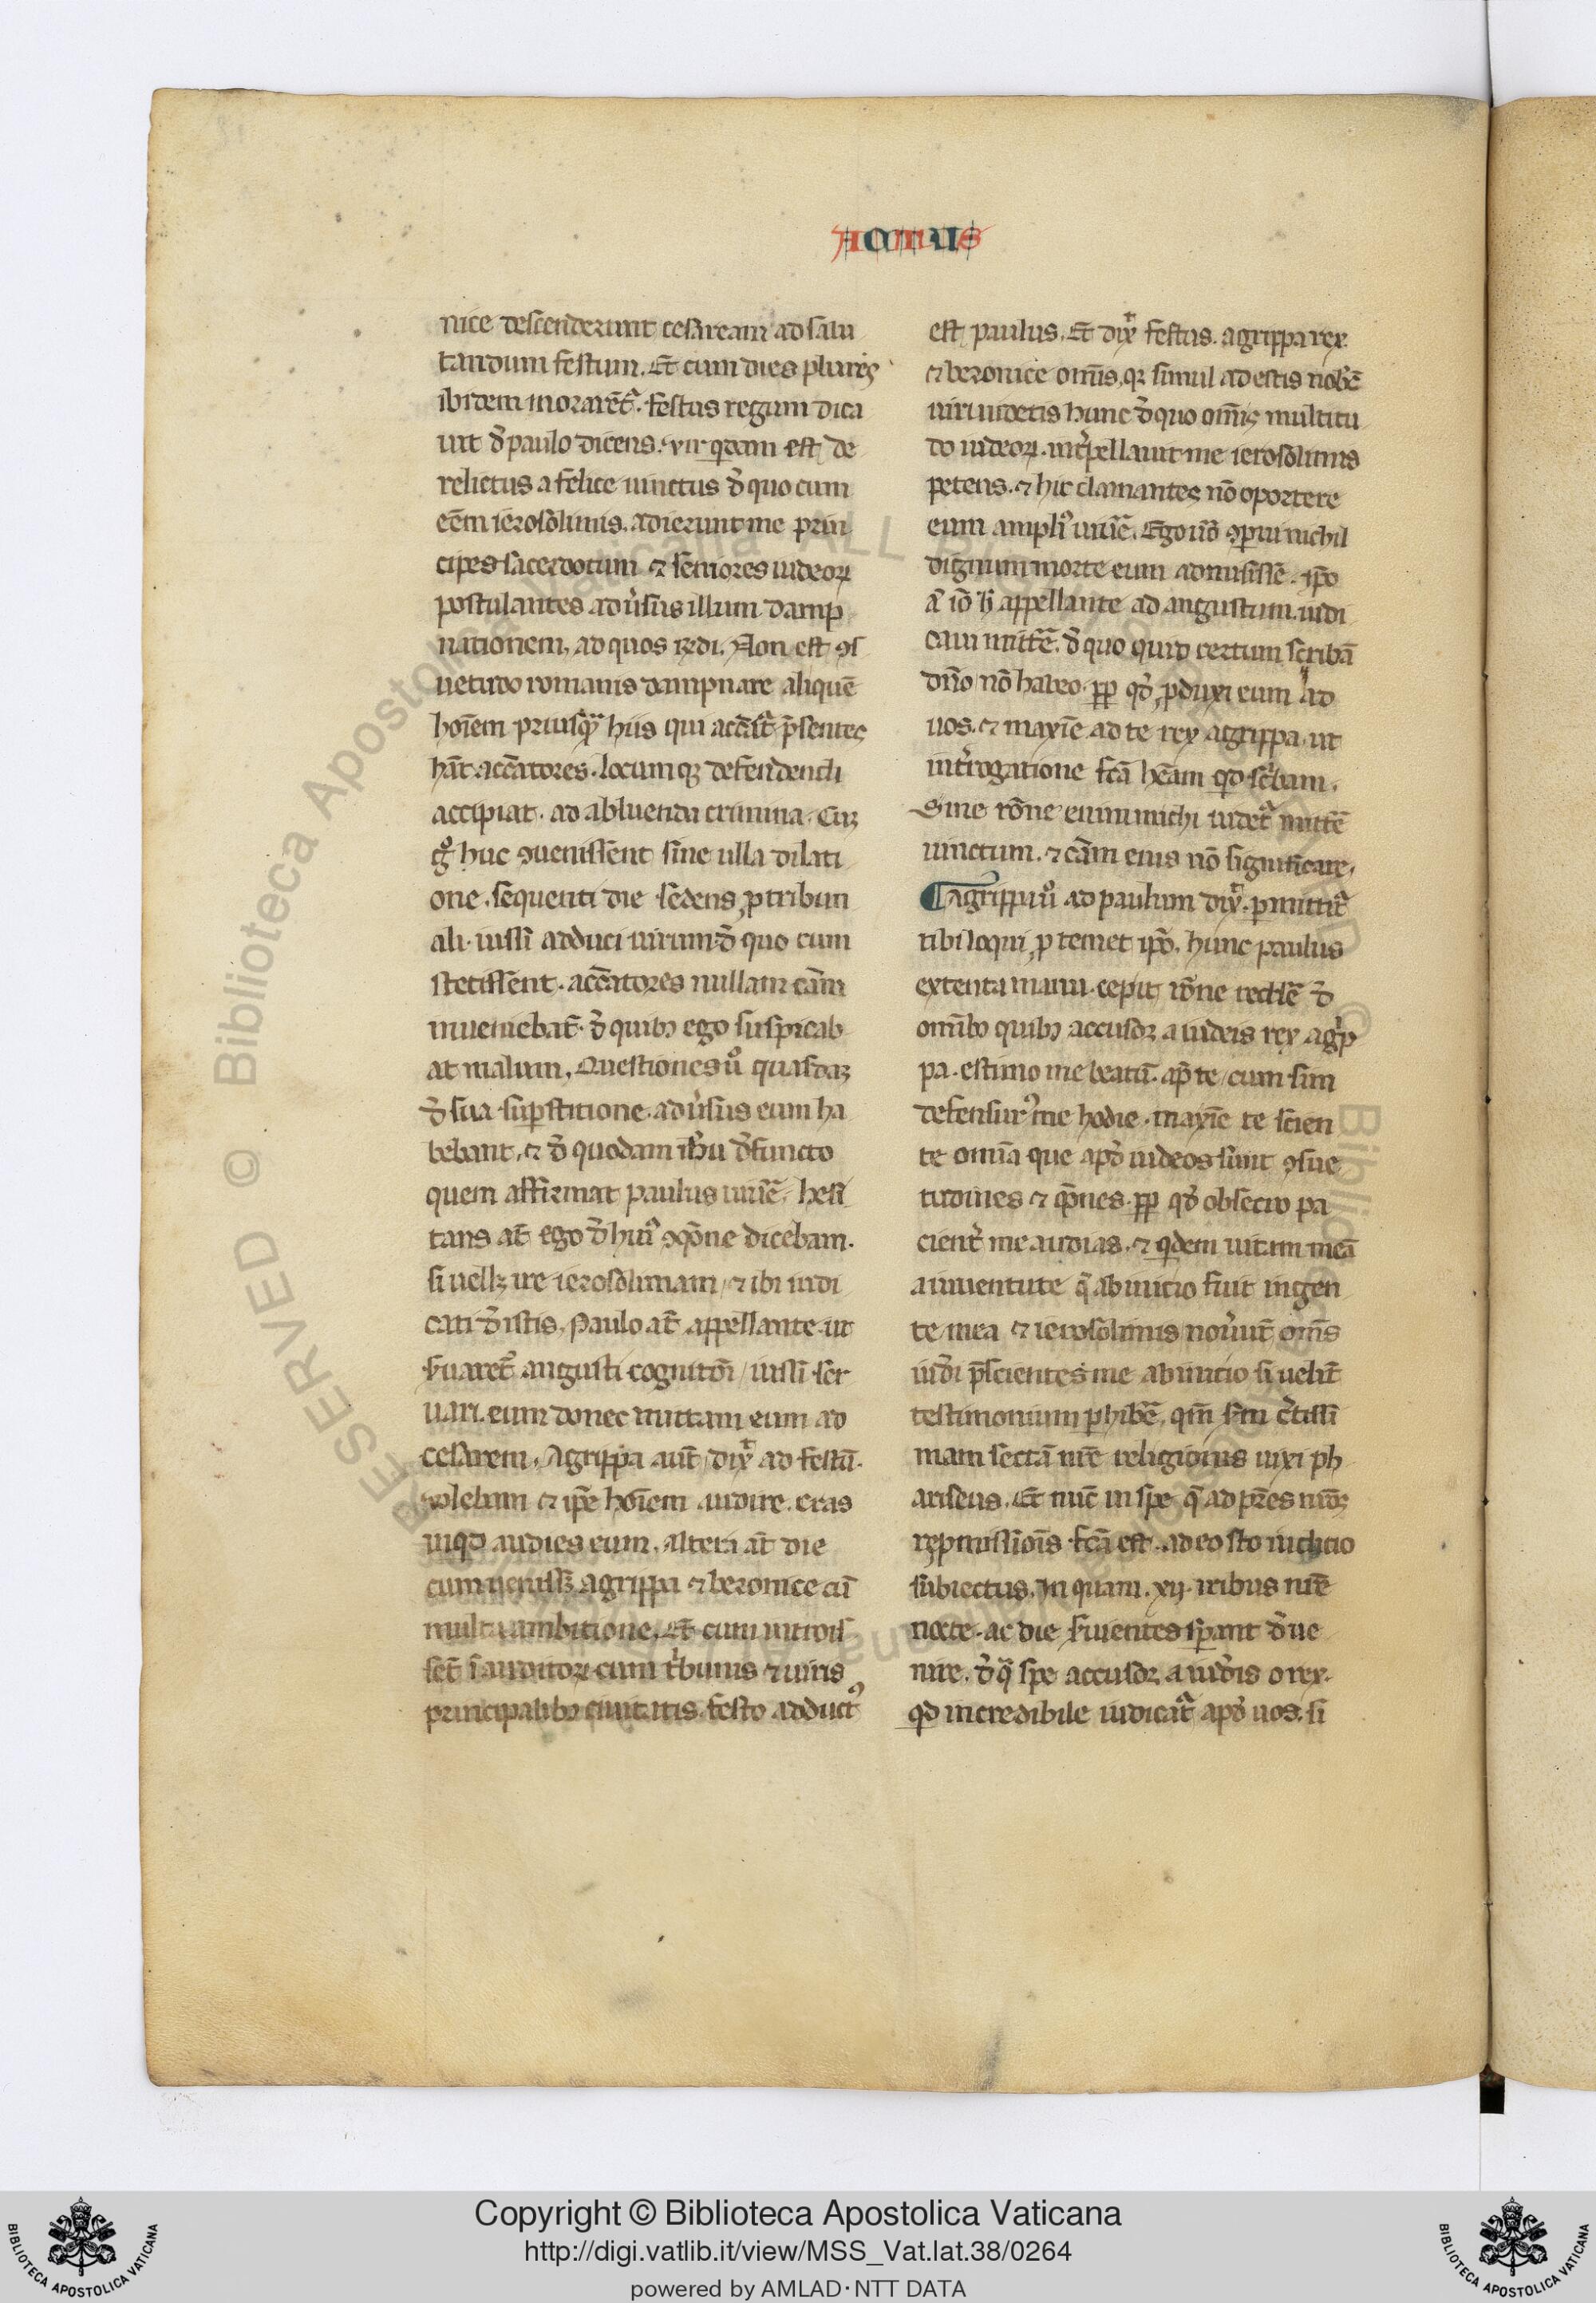 ACTUS
nice descenderunt cesaream ad salu
tandum festum. Et cum dies plures
ibidem morarẽt᷑. festus regum dica
uit ꝺ̕ paulo dicens. vir qͥdam est de
relictus a felice uinctus ꝺ̕ quo cum
eẽm ierosolimis. adierunt me prin
cipes sacerdotum ⁊ seniores iudeoꝝ
postulantes adu̕sus illum damp
nationem. ad quos r̃ndi. Non est ꝯs
uetudo romanis dampnare aliquẽ
hoĩem priusq̃ᷓ hiis qui accat᷑ p̃sentes
hãt accatores. locumqꝫ defendendi
accipiat. ad abluenda crimina. Cuꝫ
g̊ huc ꝯuenissent sine ulla dilati
one. sequenti die sedens ꝓ tribun
ali. iussi adduci uirum. ꝺ̕ quo cum
stetissent. accatores nullam cãm
inueniebãt. ꝺ̕ quibꝫ ego suspicab
at malum. Questiones u̾ quasdaꝫ
ꝺ̕ sua suꝑstitione adu̕sus eum ha
bebant. ⁊ ꝺ̕ quodam ih̃u ꝺ̕functo
quem affirmat paulus uiue᷑. hesi
tans at̃ ego ꝺ̕ huĩ ꝯq̃õne dicebam.
si uellꝫ ire ierosolimam / ⁊ ibi iudi
cari ꝺ̕ istis. Paulo at̃ appellante ut
s̕uaret᷑ augusti cognitõi / iussi ser
uari eum donec mittam eum ad
cesarem. Agrippa aut̃ / dixͭ ad festũ.
uolebam ⁊ ip̃e hoĩem audire. cras
inqͥd audies eum. altera at̃ die
cum uenissꝫ agrippa ⁊ beronice cũ
multa ambitione. Et cum introis
set̃ ĩ auditoꝝ cum t̕bunis ⁊ uiris
principalibꝫ ciuitatis. festo adductꝰ
est paulus. Et dixͭ festus. agrippa rex
⁊ beronice om̃s, qꝫ simul adestis nob̃c
uiri uidetis hunc ꝺ̕ quo om̃is multitu
do iudeoꝝ. int̕pellauit me ierosolimis
petens. ⁊ hic clamantes nõ oportere
eum ampliꝰ uiue᷑. Ego u̾o ꝯꝑui nichil
dignum morte eum admisisse᷑. ip̃o
a᷑ ið h̾ appellante ad augustum. iudi
caui mitte᷑. ꝺ̕ quo quid certum scribã
dño nõ habeo. ꝓp qð ꝓduxi eum ad
uos. ⁊ maxĩe ad te rex agrippa. ut
int̕rogatione fcã hẽam qͥd sc̕bam.
Sine rõne enim michi uidet᷑ mitte᷑
uinctum. ⁊ cãm eius nõ significare.
Agrippa u̾ ad paulum dixͭ. ꝑmittit᷑
tibi loqui ꝓ temet ip̃o. hunc paulus
extenta manu. cepit rõne redde᷑ ꝺ̕
omĩbꝫ quibꝫ accusoꝛ a iudeis rex agͥp
pa. estimo me beatũ. ap̃ te / cum sim
defensurꝰ me hodie. maxĩe te scien
te omĩa que apð iudeos sunt ꝯsue
tudines ⁊ q̃ones. ꝓp qð obsecro pa
cient̕ me audias. ⁊ qͥdem uitam meã
a iuuentute q̃ ab initio fuit in gen
te mea ⁊ ierosolimis nou̕ũt om̃s
iud̕i p̃scientes me ab initio si uelĩt
testimonium ꝑhibe᷑. qm̃ sm̃ c̕tissi
mam sectã nr̃e religionis uixi ph
ariseus. Et nũc in spe q̃ ad pr̃es nr̃os
repmissiõis fcã est. ad eo sto iudicio
subiectus. In quam .xij. tribus nr̃e
nocte ac die s̕uientes sꝑant ꝺ̕ue
nire. ꝺ̕ q̃ spe accusoꝛ a iud̕is o rex.
qͥd incredibile iudicat᷑ apð uos. si
Copyright © Biblioteca Apostolica Vaticana
http://digi.vatlib.it/view/MSS_Vat.lat.38/0264
powered by AMLAD·NTT DATA
BIBLIOTECA APOSTOLICA VATICANA
BIBLIOTECA APOSTOLICA VATICANA